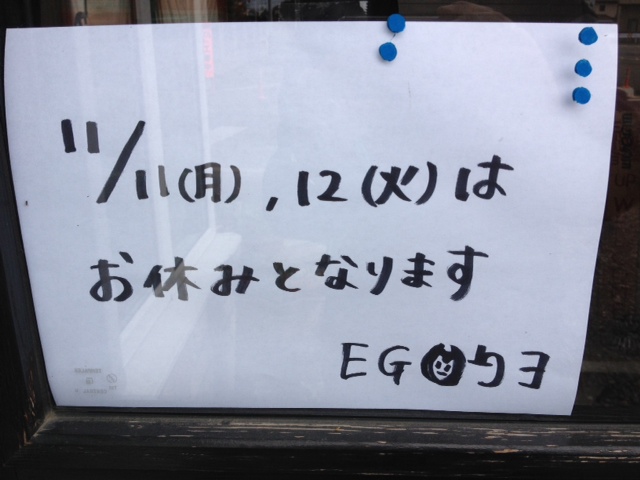 11/11(月),12(火)は
お休みとなります
EG